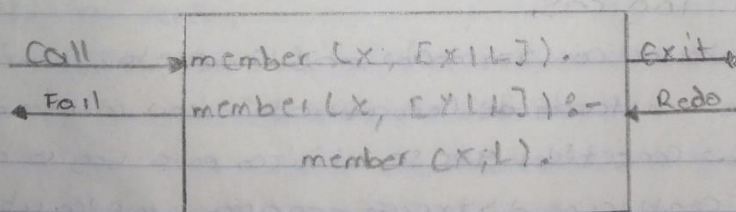 Call member (X, [X|L]). Exit
Fail member (X, [Y|L]) :- Redo
member (X, L).